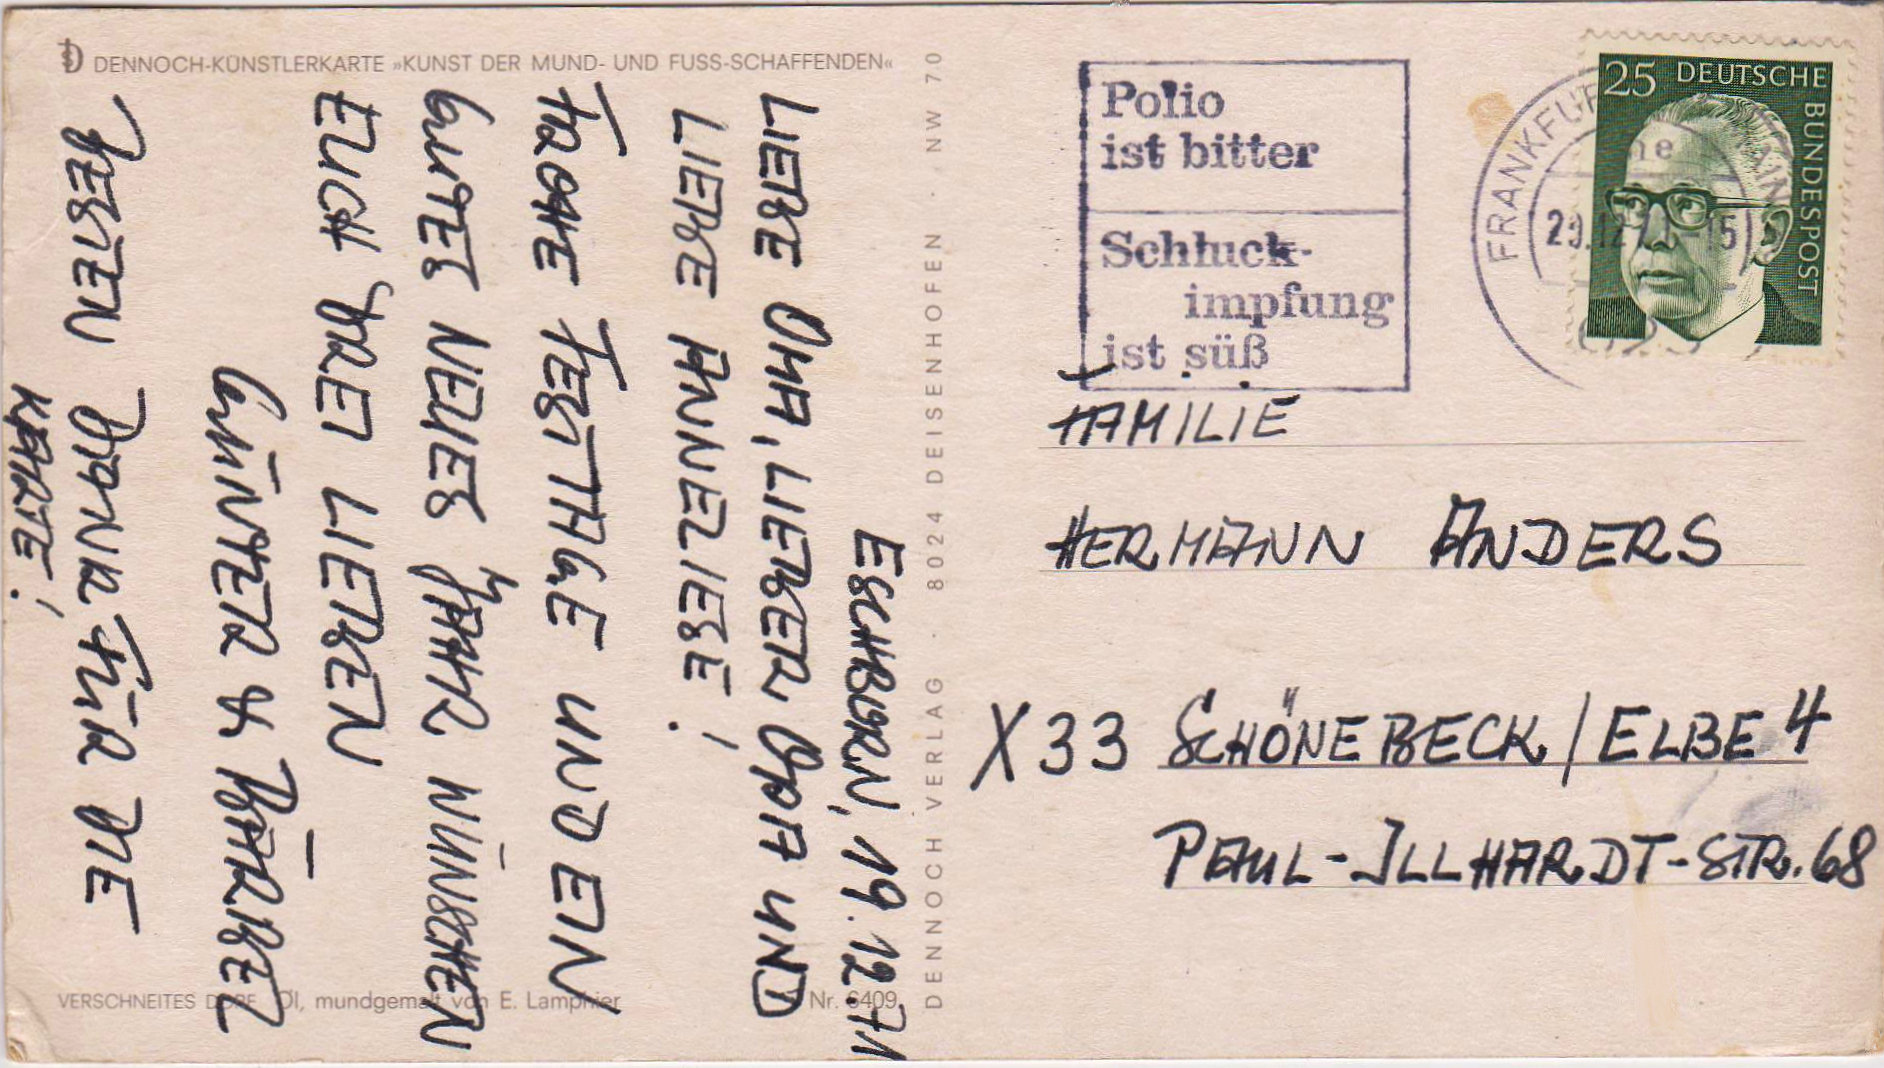 DENNOCH-KÜNSTLERKARTE »KUNST DER MUND- UND FUSS-SCHAFFENDEN«
ESCHBORN, 19.12.71
LIEBE OMA, LIEBER OPA UND
LIEBE ANNELIESE!
FROHE FESTTAGE UND EIN
GUTES NEUES JAHR WÜNSCHEN
EUCH DREI LIEBEN
GÜNTER & BÄRBEL
BESTEN DANK FÜR DIE
KARTE!
VERSCHNEITES DORF Öl, mundgemalt von E. Lamphier Nr. 6409
DENNOCH VERLAG · 8024 DEISENHOFEN · NW 70
Polio
ist bitter
Schluck-
impfung
ist süß
FRANKFUR AIN
ne
12 15
25 DEUTSCHE BUNDESPOST
FAMILIE
HERMANN ANDERS
X33 SCHÖNEBECK/ELBE 4
PAUL-ILLHARDT-STR. 68